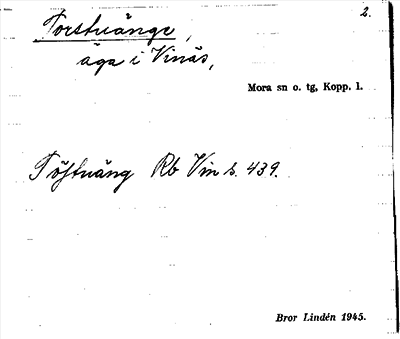 2.
Torstuänge,
äga i Vinäs,
Mora sn o. tg, Kopp. l.
Töstuäng Rb Vin s. 439.
Bror Lindén 1945.